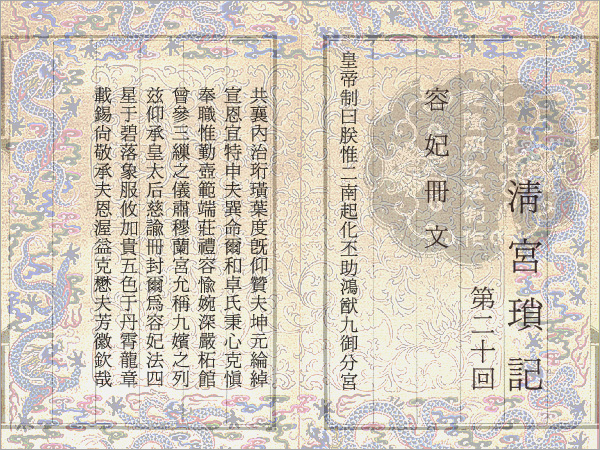 清宮瑣記
第二十回
容妃冊文
皇帝制曰朕惟二南起化丕助鴻猷九御分宮
共襄內治珩璜葉度旣仰贊夫坤元綸綍
宣恩宜特申夫巽命爾和卓氏秉心克愼
奉職惟勤壺範端莊禮容愉婉深嚴柘館
曾參三繅之儀肅穆蘭宮允稱九嬪之列
兹仰承皇太后慈諭冊封爾爲容妃法四
星于碧落象服攸加貴五色于丹霄龍章
載錫尙敬承夫恩渥益克懋夫芳徽欽哉